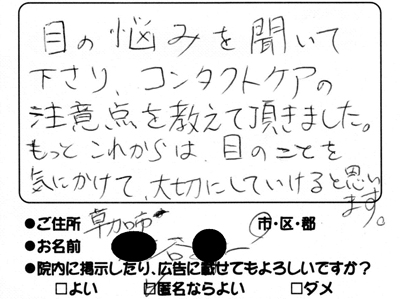 目の悩みを聞いて
下さり、コンタクトケアの
注意点を教えて頂きました。
もっとこれからは、目のことを
気にかけて、大切にしていけると思い
ます。
●ご住所 草加市 市・区・郡
●お名前 谷
●院内に掲示したり、広告に載せてもよろしいですか?
□よい ☑匿名ならよい □ダメ